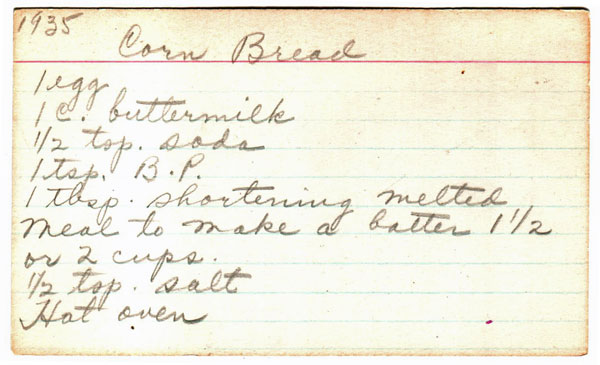 1935
Corn Bread
1 egg
1 c. buttermilk
1/2 tsp. soda
1 tsp. B.P.
1 tbsp. shortening melted
Meal to make a batter 1 1/2
or 2 cups.
1/2 tsp. salt
Hot oven